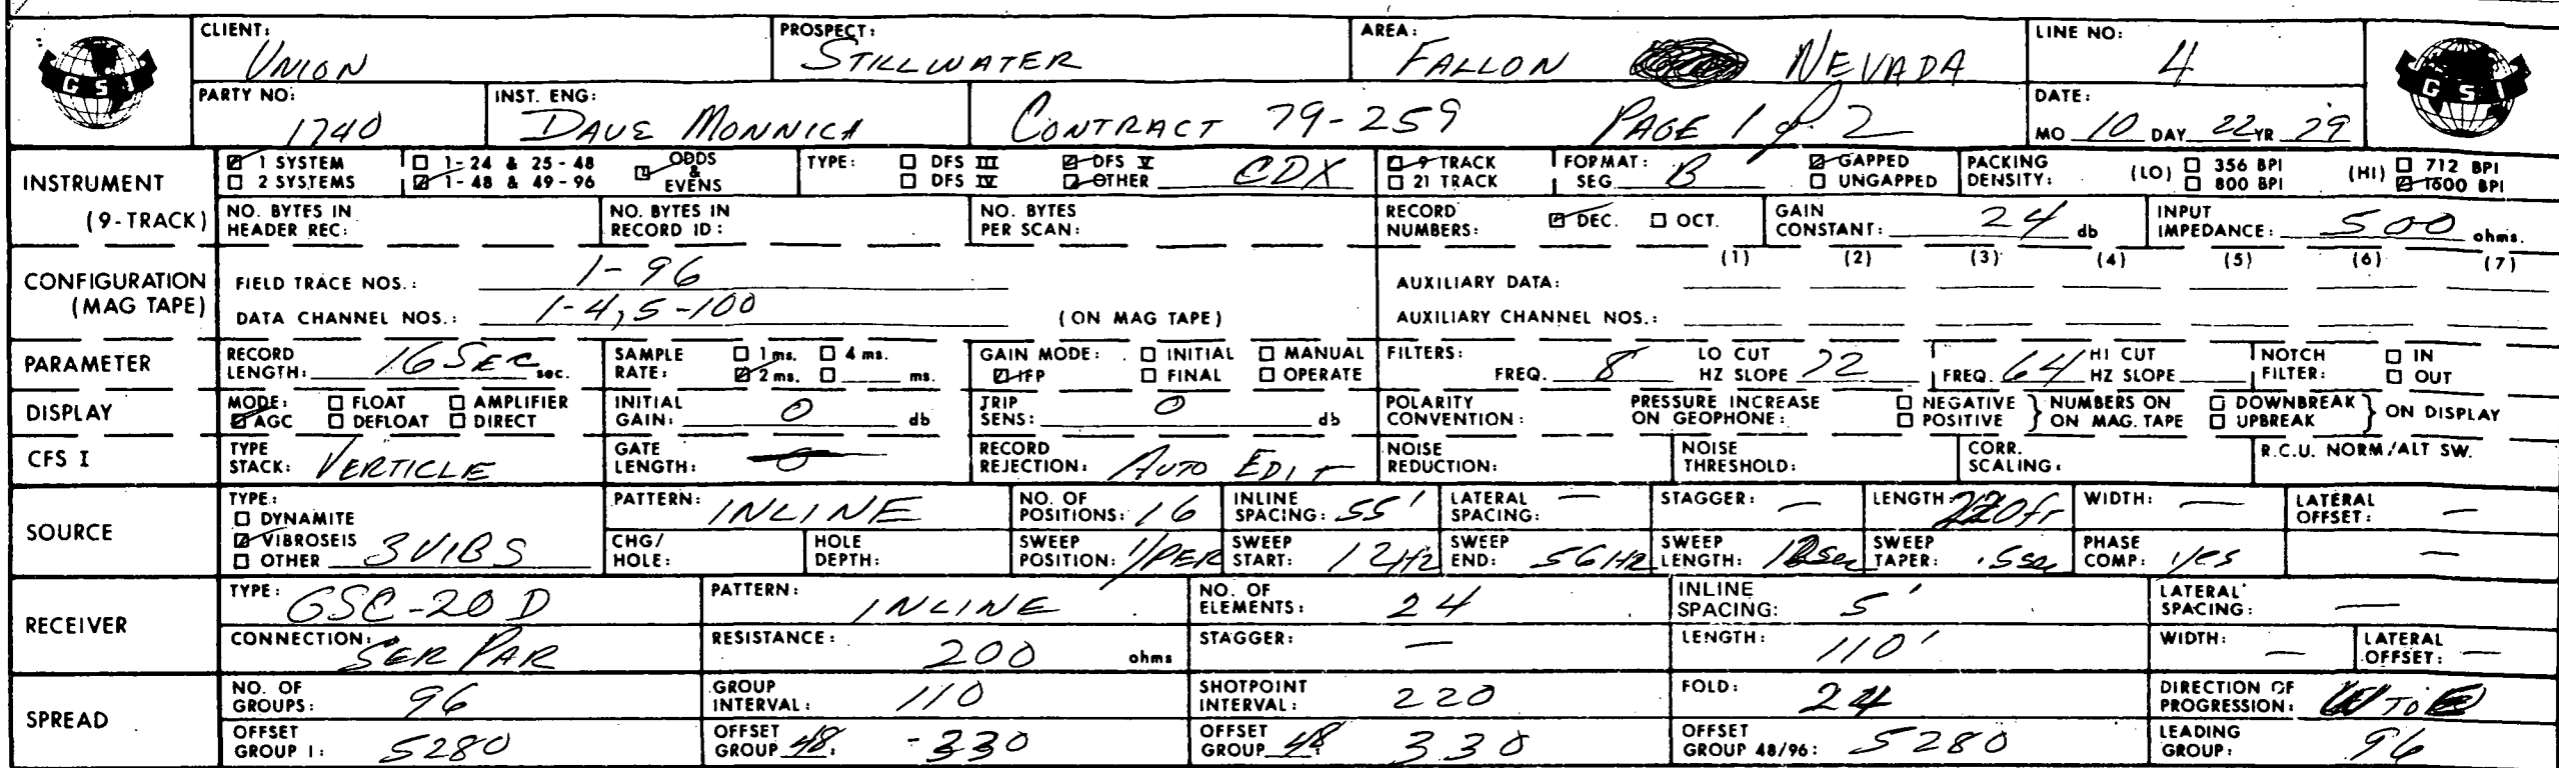 CLIENT: UNION PROSPECT: STILLWATER AREA: FALLON NEVADA LINE NO: 4
GSI GSI
PARTY NO: 1740 INST. ENG: DAVE MONNICH CONTRACT 79-259 PAGE 1 of 2 DATE: MO 10 DAY 22 YR 79
INSTRUMENT (9-TRACK) 1 SYSTEM 2 SYSTEMS 1-24 & 25-48 1-48 & 49-96 ODDS & EVENS TYPE: DFS III DFS IV DFS V OTHER CDX 9 TRACK 21 TRACK FORMAT: SEG B GAPPED UNGAPPED PACKING DENSITY: (LO) 356 BPI 800 BPI (HI) 712 BPI 1600 BPI
NO. BYTES IN HEADER REC: NO. BYTES IN RECORD ID: NO. BYTES PER SCAN: RECORD NUMBERS: DEC. OCT. GAIN CONSTANT: 24 db INPUT IMPEDANCE: 500 ohms.
CONFIGURATION (MAG TAPE) FIELD TRACE NOS.: 1-96 AUXILIARY DATA: (1) (2) (3) (4) (5) (6) (7)
DATA CHANNEL NOS.: 1-4, 5-100 (ON MAG TAPE) AUXILIARY CHANNEL NOS.:
PARAMETER RECORD LENGTH: 16 SEC sec. SAMPLE RATE: 1 ms. 4 ms. 2 ms. ms. GAIN MODE: INITIAL MANUAL IFP FINAL OPERATE FILTERS: FREQ. 8 LO CUT HZ SLOPE FREQ. 64 HI CUT HZ SLOPE NOTCH FILTER: IN OUT
DISPLAY MODE: FLOAT AMPLIFIER AGC DEFLOAT DIRECT INITIAL GAIN: 0 db TRIP SENS: 0 db POLARITY CONVENTION: PRESSURE INCREASE ON GEOPHONE: NEGATIVE POSITIVE NUMBERS ON MAG. TAPE DOWNBREAK UPBREAK ON DISPLAY
CFS I TYPE STACK: VERTICLE GATE LENGTH: RECORD REJECTION: AUTO EDIT NOISE REDUCTION: NOISE THRESHOLD: CORR. SCALING: R.C.U. NORM/ALT SW.
SOURCE TYPE: DYNAMITE VIBROSEIS OTHER 3 VIBS PATTERN: INLINE NO. OF POSITIONS: 16 INLINE SPACING: 55' LATERAL SPACING: — STAGGER: — LENGTH: 220 ft WIDTH: — LATERAL OFFSET: —
CHG/HOLE: HOLE DEPTH: SWEEP POSITION: 1/PER SWEEP START: 12 HZ SWEEP END: 56 HZ SWEEP LENGTH: sec SWEEP TAPER: .5 sec PHASE COMP: yes —
RECEIVER TYPE: GSC-20 D PATTERN: INLINE NO. OF ELEMENTS: 24 INLINE SPACING: 5' LATERAL SPACING: —
CONNECTION: SER PAR RESISTANCE: 200 ohms STAGGER: — LENGTH: 110' WIDTH: — LATERAL OFFSET: —
SPREAD NO. OF GROUPS: 96 GROUP INTERVAL: 110 SHOTPOINT INTERVAL: 220 FOLD: 24 DIRECTION OF PROGRESSION: W TO E
OFFSET GROUP 1: 5280 OFFSET GROUP 48: -330 OFFSET GROUP 330 OFFSET GROUP 48/96: 5280 LEADING GROUP: 96